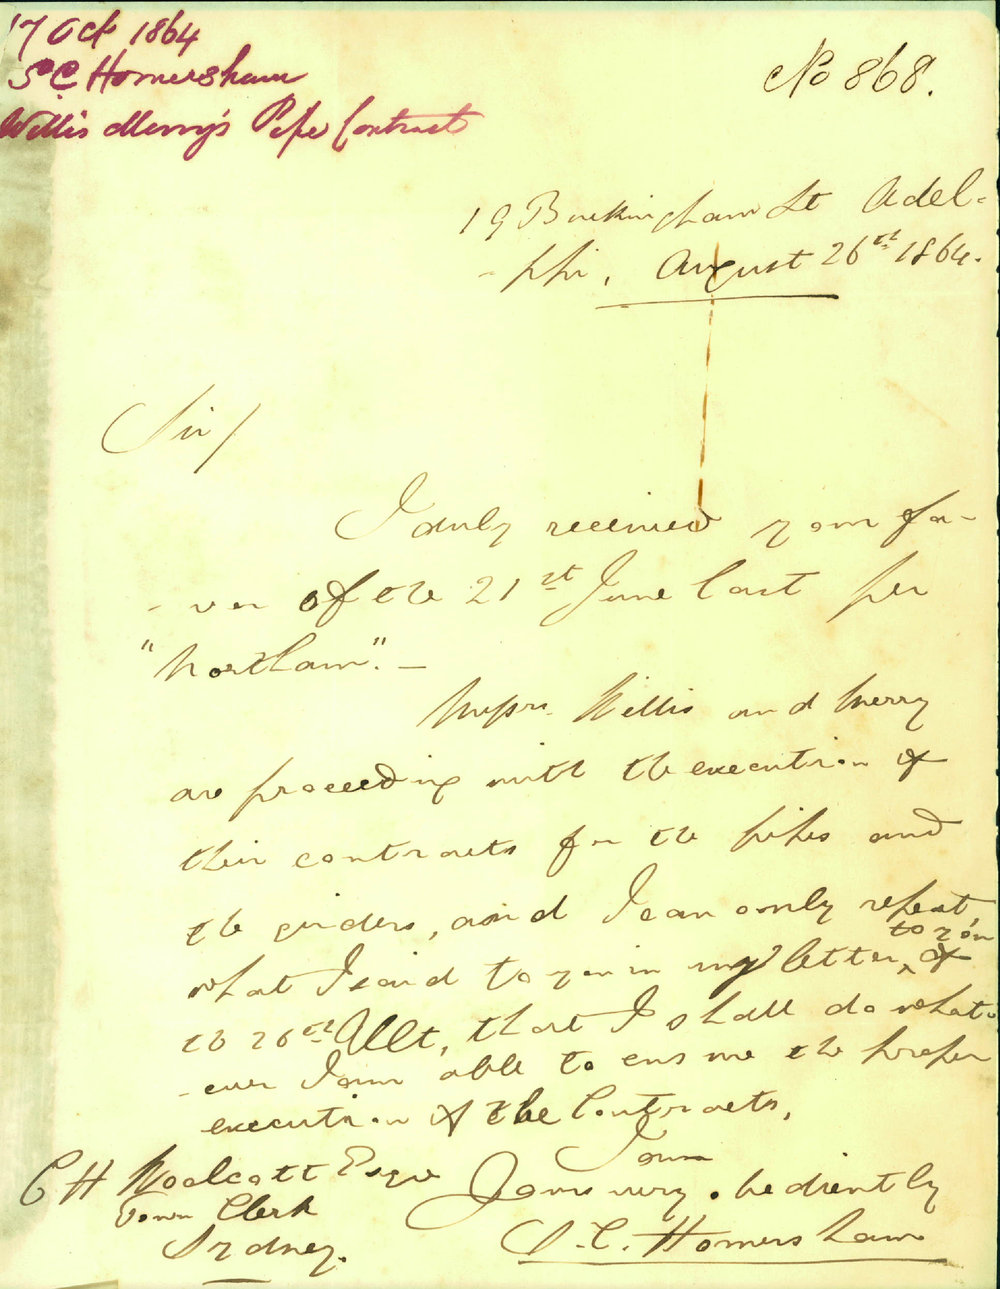 17 Oct 1864
S C Homersham
Willis Merry's Pipe Contract
No 868.
19 Buckingham St Adel-
-phi, August 26th 1864.
Sir/
I duly received your fa-
-vor of the 21st June last per
"Northam". —
Messrs. Willis and Merry
are proceeding with the execution of
their contracts for the pipes and
the girders, and I can only repeat,
what I said to you in my letter, to you of
the 26th Ullt, that I shall do what-
-ever I am able to ensure the proper
execution of the Contracts,
I am
Yours very obediently
S. C. Homersham
C H Woolcott Esqre
Town Clerk
Sydney.